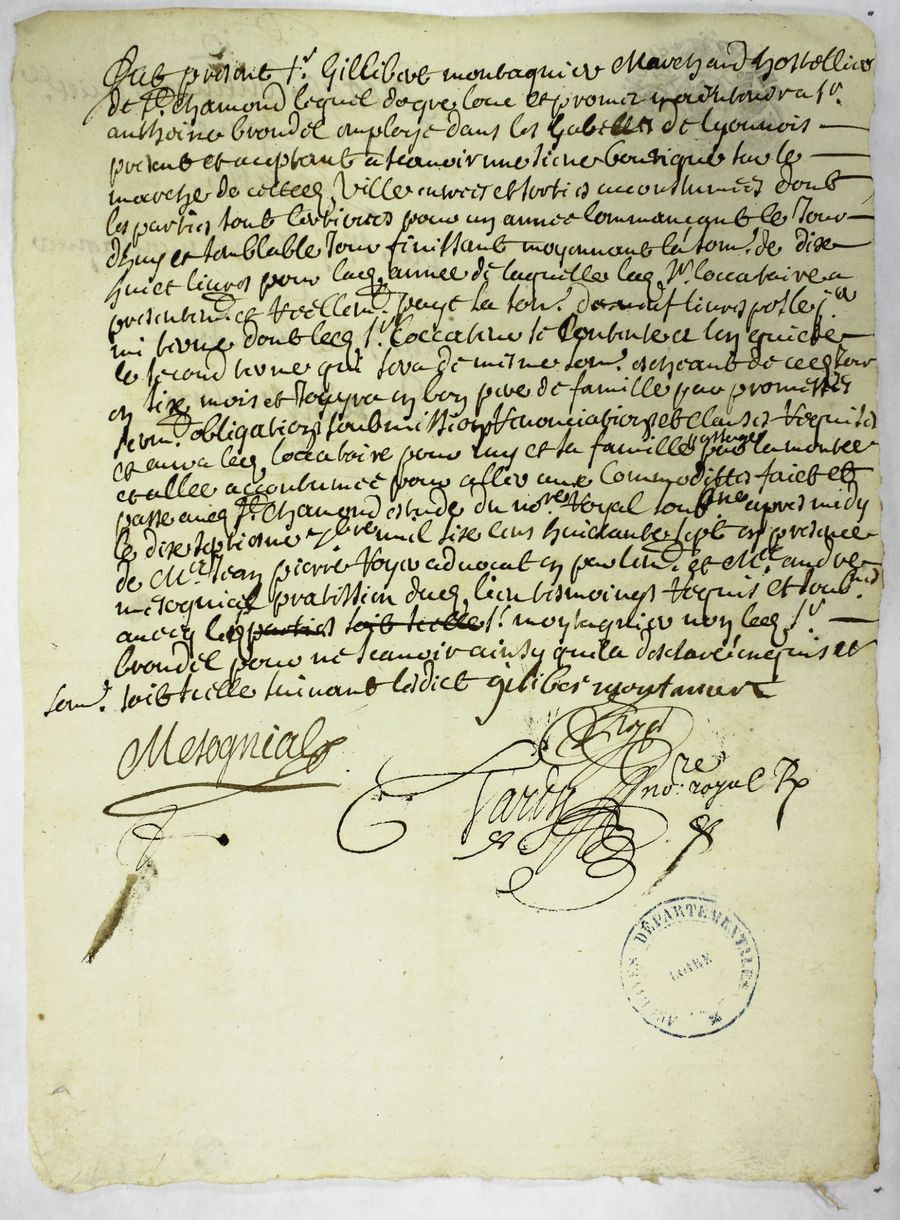 Fut present Sr. Gillibert montagnier Marchand hostellier
de St. chamond lequel de gre loue et promet maintenir a Sr.
anthoine brondel employe dans les Gabelles de lyonnois
present et acceptant a scavoir une sienne boutique sur le
marche de cette ville entrees et sorties accoustumees dont
les parties sont certiores pour un annee commancant le Jour
dhuy et semblable Jour finissant moyennant la som. de dix
huict livres pour lad. annee de laquelle led. Sr. loccataire a
presentemt. et reellemt. paye la som. de neuf livres pour le pr.
mi terme dont led. Sr. Loccateur se Contente et len quicte
le second terme qui sera de mesme som. escheant de ce Jour
en six mois et Jouyra en bon pere de famille par promesses
sermt. obligations soubmissions Renonciations et clauses requises
et aura led. loccataire pour luy et sa famille passage pour la montee
et allee accoutumee pour aller aux Commodittes faict et
passe aud. St. chamond estude du nore. Royal soubsne. apres midy
le dix septiesme 7bre mil six cens huictante sept en presence
de Mr. Jean pierre Roye advocat en parlemt. et Me. andre
mesognial pratissien dud. lieu tesmoings requis et soubsnes
avec les parties soit scelle Sr. montagnier non led. Sr.
brondel pour ne scavoir ainsy quil a desclare enquis et
som. soit scelle suivant ledict gilibert montanier
Mesognial
Roye
Tardy nore. royal Rx
ARCHIVES DÉPARTEMENTALES
LOIRE